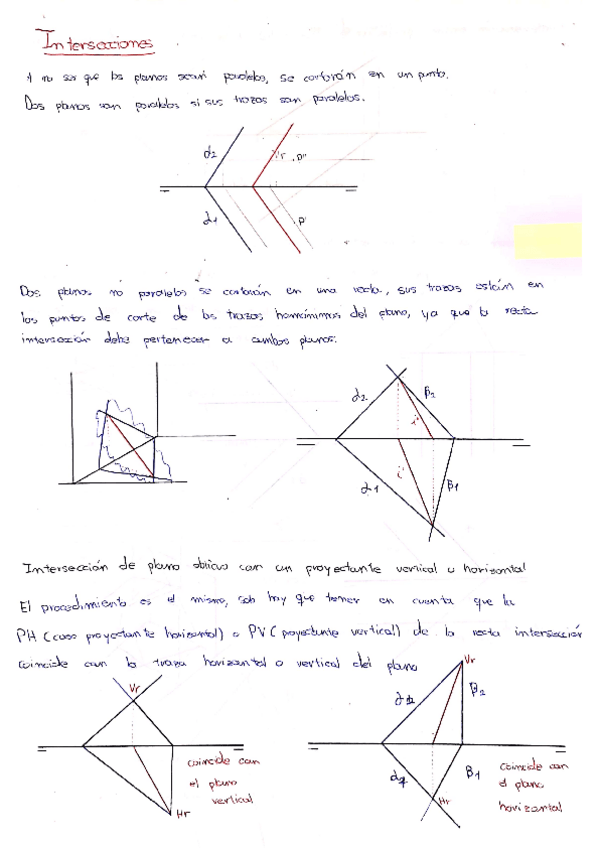 Intersecciones
A no ser que los planos sean paralelos, se cortarán en un punto.
Dos planos son paralelos si sus trazas son paralelas.
α2
Vr
P''
α1
P'
Dos planos no paralelos se cortarán en una recta, sus trazas están en
los puntos de corte de las trazas homónimas del plano, ya que la recta
intersección debe pertenecer a ambos planos.
α2
β2
i''
i'
α1
β1
Intersección de plano oblicuo con un proyectante vertical u horizontal
El procedimiento es el mismo, solo hay que tener en cuenta que la
PH (caso proyectante horizontal) o PV (proyectante vertical) de la recta intersección
coincide con la traza horizontal o vertical del plano
Vr
coincide con
el plano
vertical
Hr
Vr
β2
β1
Hr
coincide con
el plano
horizontal